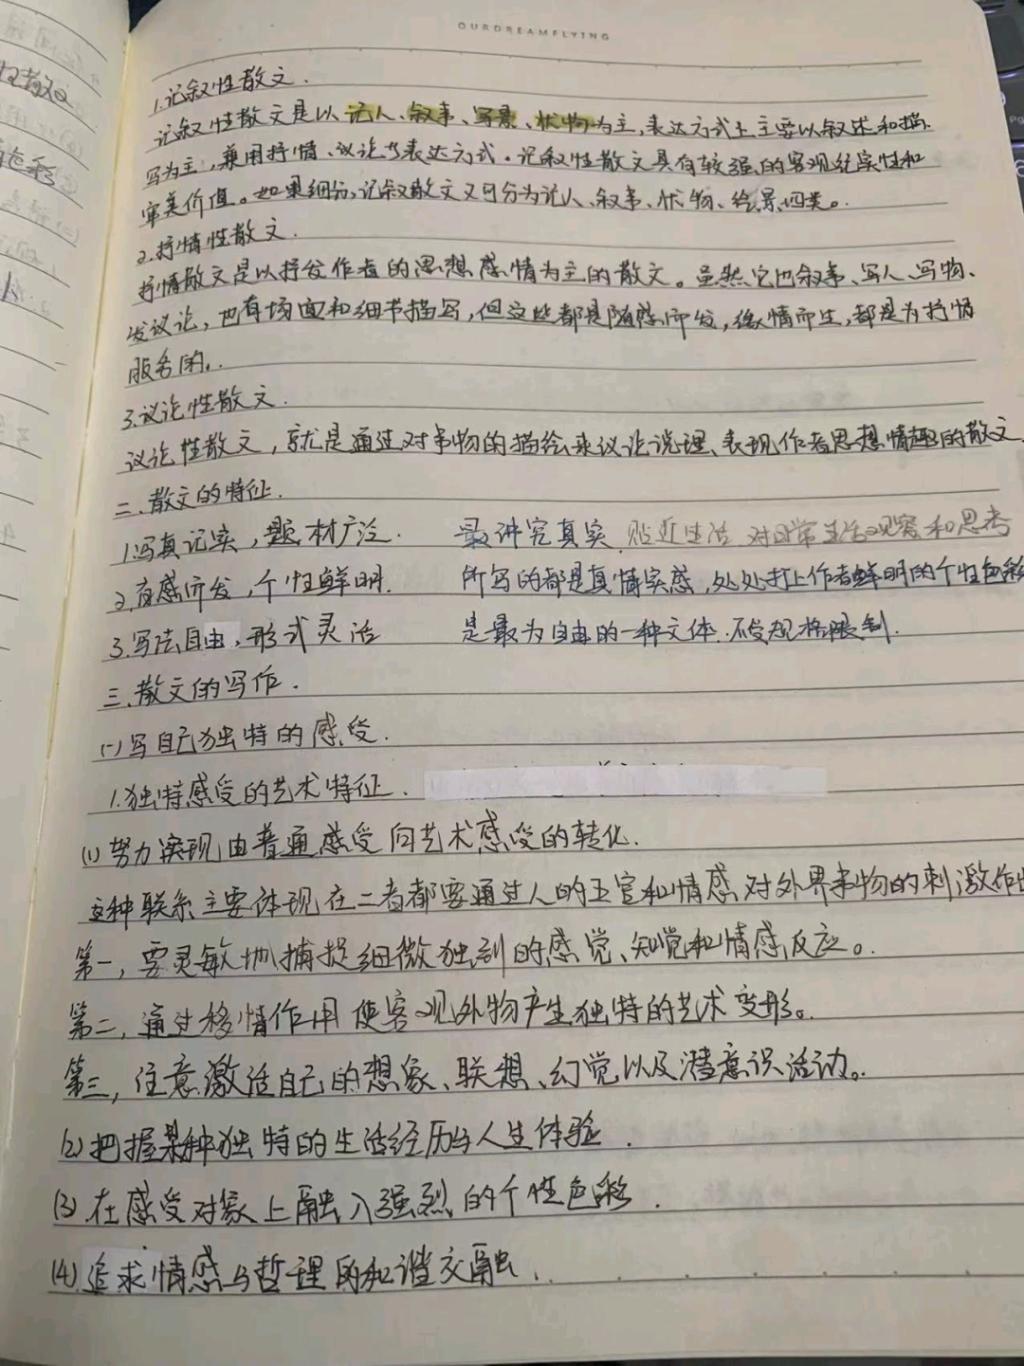 OURDREAMFLYING
1.记叙性散文.
记叙性散文是以记人、叙事、写景、状物为主,表达方式上主要以叙述和描
写为主,兼用抒情、议论等表达方式。记叙性散文具有较强的客观纪实性和
审美价值。如果细分,记叙散文又可分为记人、叙事、状物、绘景四类。
2.抒情性散文.
抒情散文是以抒发作者的思想感情为主的散文。虽然它也叙事、写人、写物、
发议论,也有场面和细节描写,但这些都是随感而发,缘情而生,都是为抒情
服务的。
3.议论性散文.
议论性散文,就是通过对事物的描绘来议论说理、表现作者思想情趣的散文.
二.散文的特征.
1.写真记实,题材广泛. 最讲究真实 贴近生活 对日常生活观察和思考
2.有感而发,个性鲜明. 所写的都是真情实感,处处打上作者鲜明的个性色彩
3.写法自由,形式灵活 是最为自由的一种文体.不受规格限制.
三.散文的写作.
(一)写自己独特的感受.
1.独特感受的艺术特征.
(1)努力实现由普通感受向艺术感受的转化.
这种联系主要体现在二者都要通过人的五官和情感对外界事物的刺激作出
第一,要灵敏地捕捉细微独到的感觉、知觉和情感反应。
第二,通过移情作用使客观外物产生独特的艺术变形。
第三,注意激活自己的想象、联想、幻觉以及潜意识活动。
(2)把握某种独特的生活经历与人生体验.
(3)在感受对象上融入强烈的个性色彩.
(4)追求情感与哲理的和谐交融.